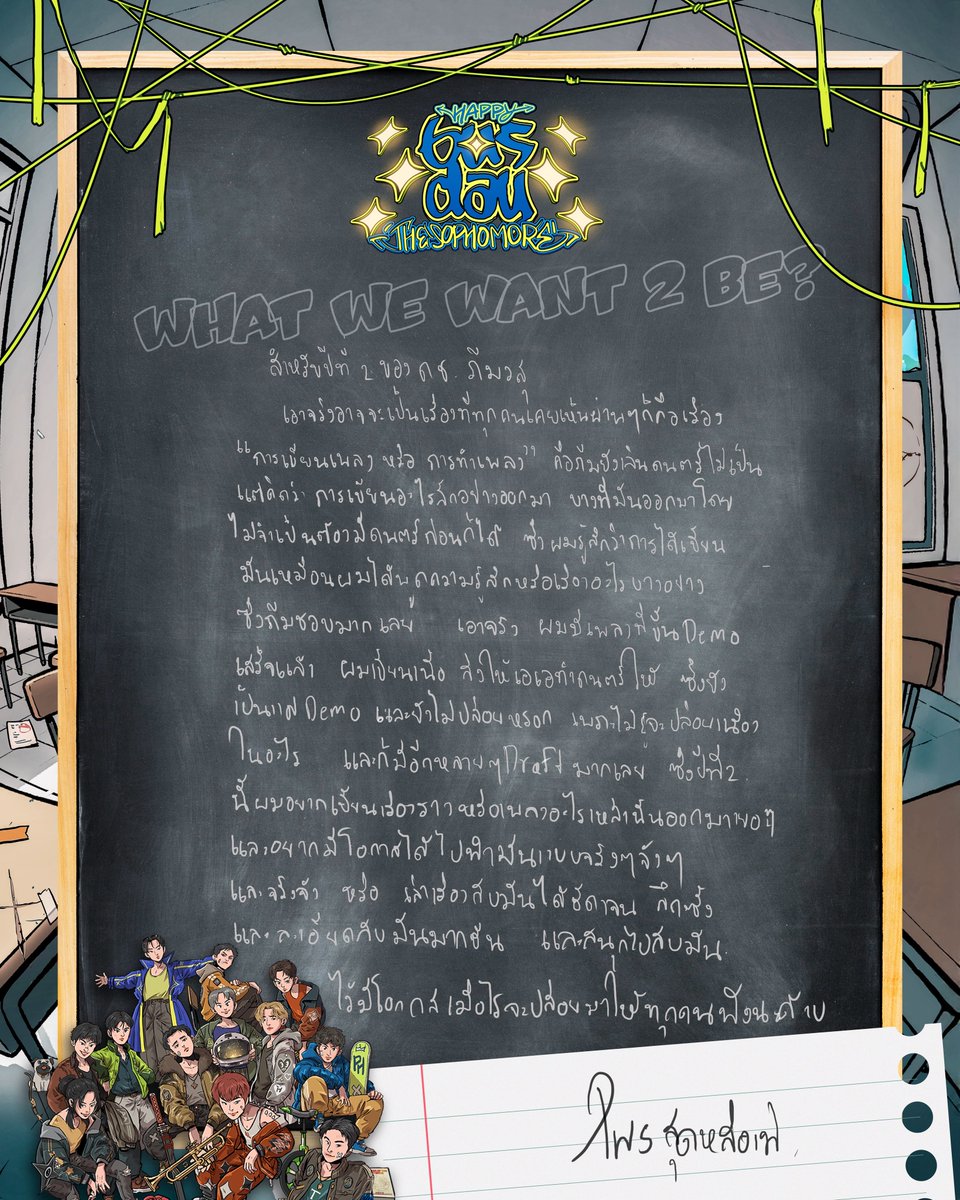 HAPPY
BUS
day
THE SOPHOMORE
WHAT WE WANT 2 BE?
สำหรับปีที่ 2 ของ ด.ช. ภีมวสุ
เอาจริงอาจจะเป็นเรื่องที่ทุกคนเคยเห็นผ่านๆก็คือเรื่อง
“การเขียนเพลง หรือ การทำเพลง” คือภีมยังเล่นดนตรีไม่เป็น
แต่คิดว่า การเขียนอะไรสักอย่างออกมา บางทีมันออกมาโดย
ไม่จำเป็นต้องมีดนตรีก่อนก็ได้ ซึ่งผมรู้สึกว่าการได้เขียน
มันเหมือนผมได้พูดความรู้สึกหรือเรื่องอะไรบางอย่าง
ซึ่งภีมชอบมากเลย เอาจริง ผมมีเพลงที่ขึ้น Demo
เสร็จแล้ว ผมเขียนเนื้อ ส่งให้เอเอทำดนตรีให้ ซึ่งยัง
เป็นแค่ Demo และยังไม่ปล่อยหรอก เพราะไม่รู้จะปล่อยเนื่อง
ในอะไร และก็มีอีกหลายๆ Draft มากเลย ซึ่งปีที่ 2
นี้ผมอยากเขียนเรื่องราวหรือเพลงอะไรเหล่านั้นออกมาเยอะๆ
และอยากมีโอกาสได้ไปทำมันแบบจริงๆจังๆ
และจริงจัง หรือ เล่าเรื่องกับมันได้ชัดเจน ลึกซึ้ง
และละเอียดกับมันมากขึ้น และสนุกไปกับมัน.
ไว้มีโอกาสเมื่อไรจะปล่อยมาให้ทุกคนฟังนะค้าบ
สุดหล่อเฟ่